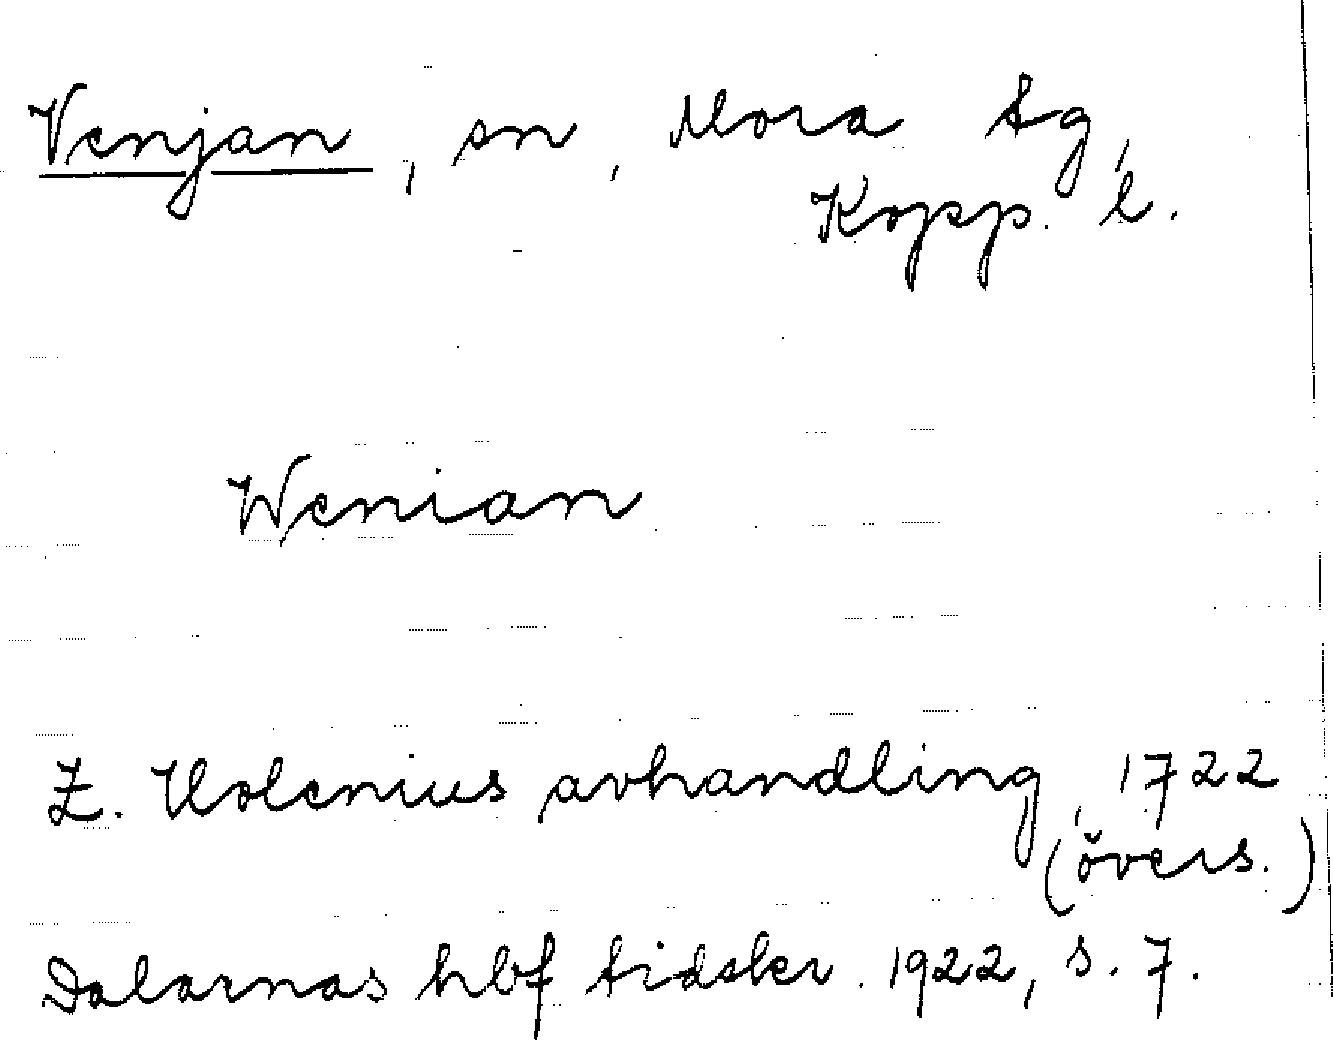 Venjan, sn, Mora tg,
Kopp. l.
Wenian
Z. Holenius avhandling, 1722
(övers.)
Dalarnas hbf tidskr. 1922, s. 7.